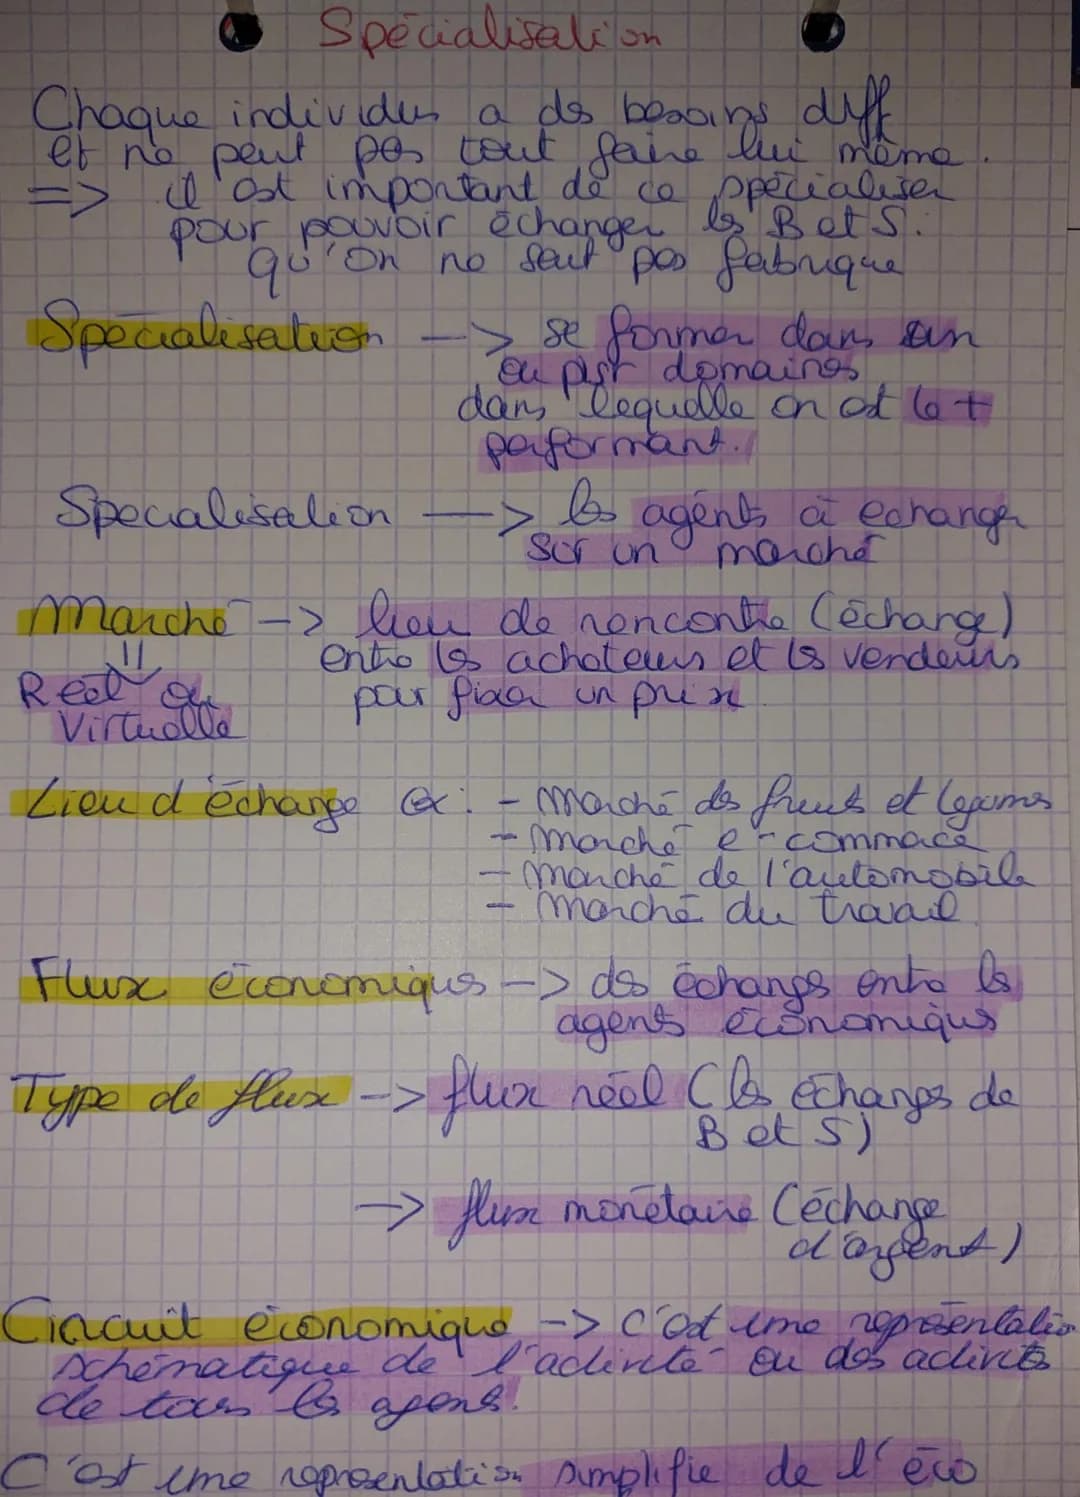 Spécialisation
Chaque individus a des besoins diff
et ne peut pas tout faire lui même.
=> il est important de ce spécialiser
pour pouvoir échanger les B et S.
qu'on ne seut pas fabrique
Spécialisation -> se former dans un
ou plsr domaines
dans lequelle on est le +
performant.
Specialisation -> les agents à echanger
sur un marché
Marché -> lieu de rencontre (échange)
entre les acheteurs et les vendeurs
Réel ou
Virtuelle
par fixer un prix
Lieu d'échange ex: - Marché des fruits et legumes
- Marché e-commerce
- Marché de l'automobile
- Marché du travail
Flux économiques -> des échanges entre les
agents économiques
Type de flux -> flux réel (les échanges de
B et S)
-> flux monétaire (échange
d'argent)
Circuit économique -> C'est une représentatio
schématique de l'activité ou des activités
de tous les agens.
C'est une representation simplifie de l'éco